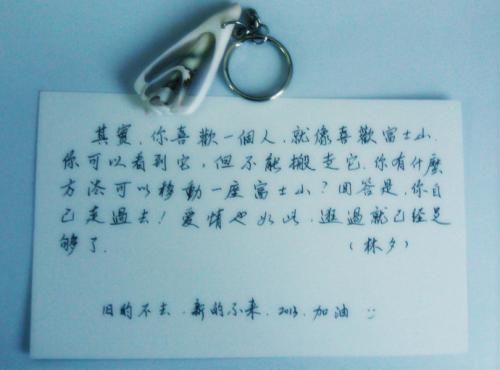 其實，你喜歡一個人，就像喜歡富士山.
你可以看到它，但不能搬走它.你有什麼
方法可以移動一座富士山？回答是，你自
己走過去！愛情也如此，逛過就已經足
夠了.（林夕）
旧的不去.新的不来.2013.加油